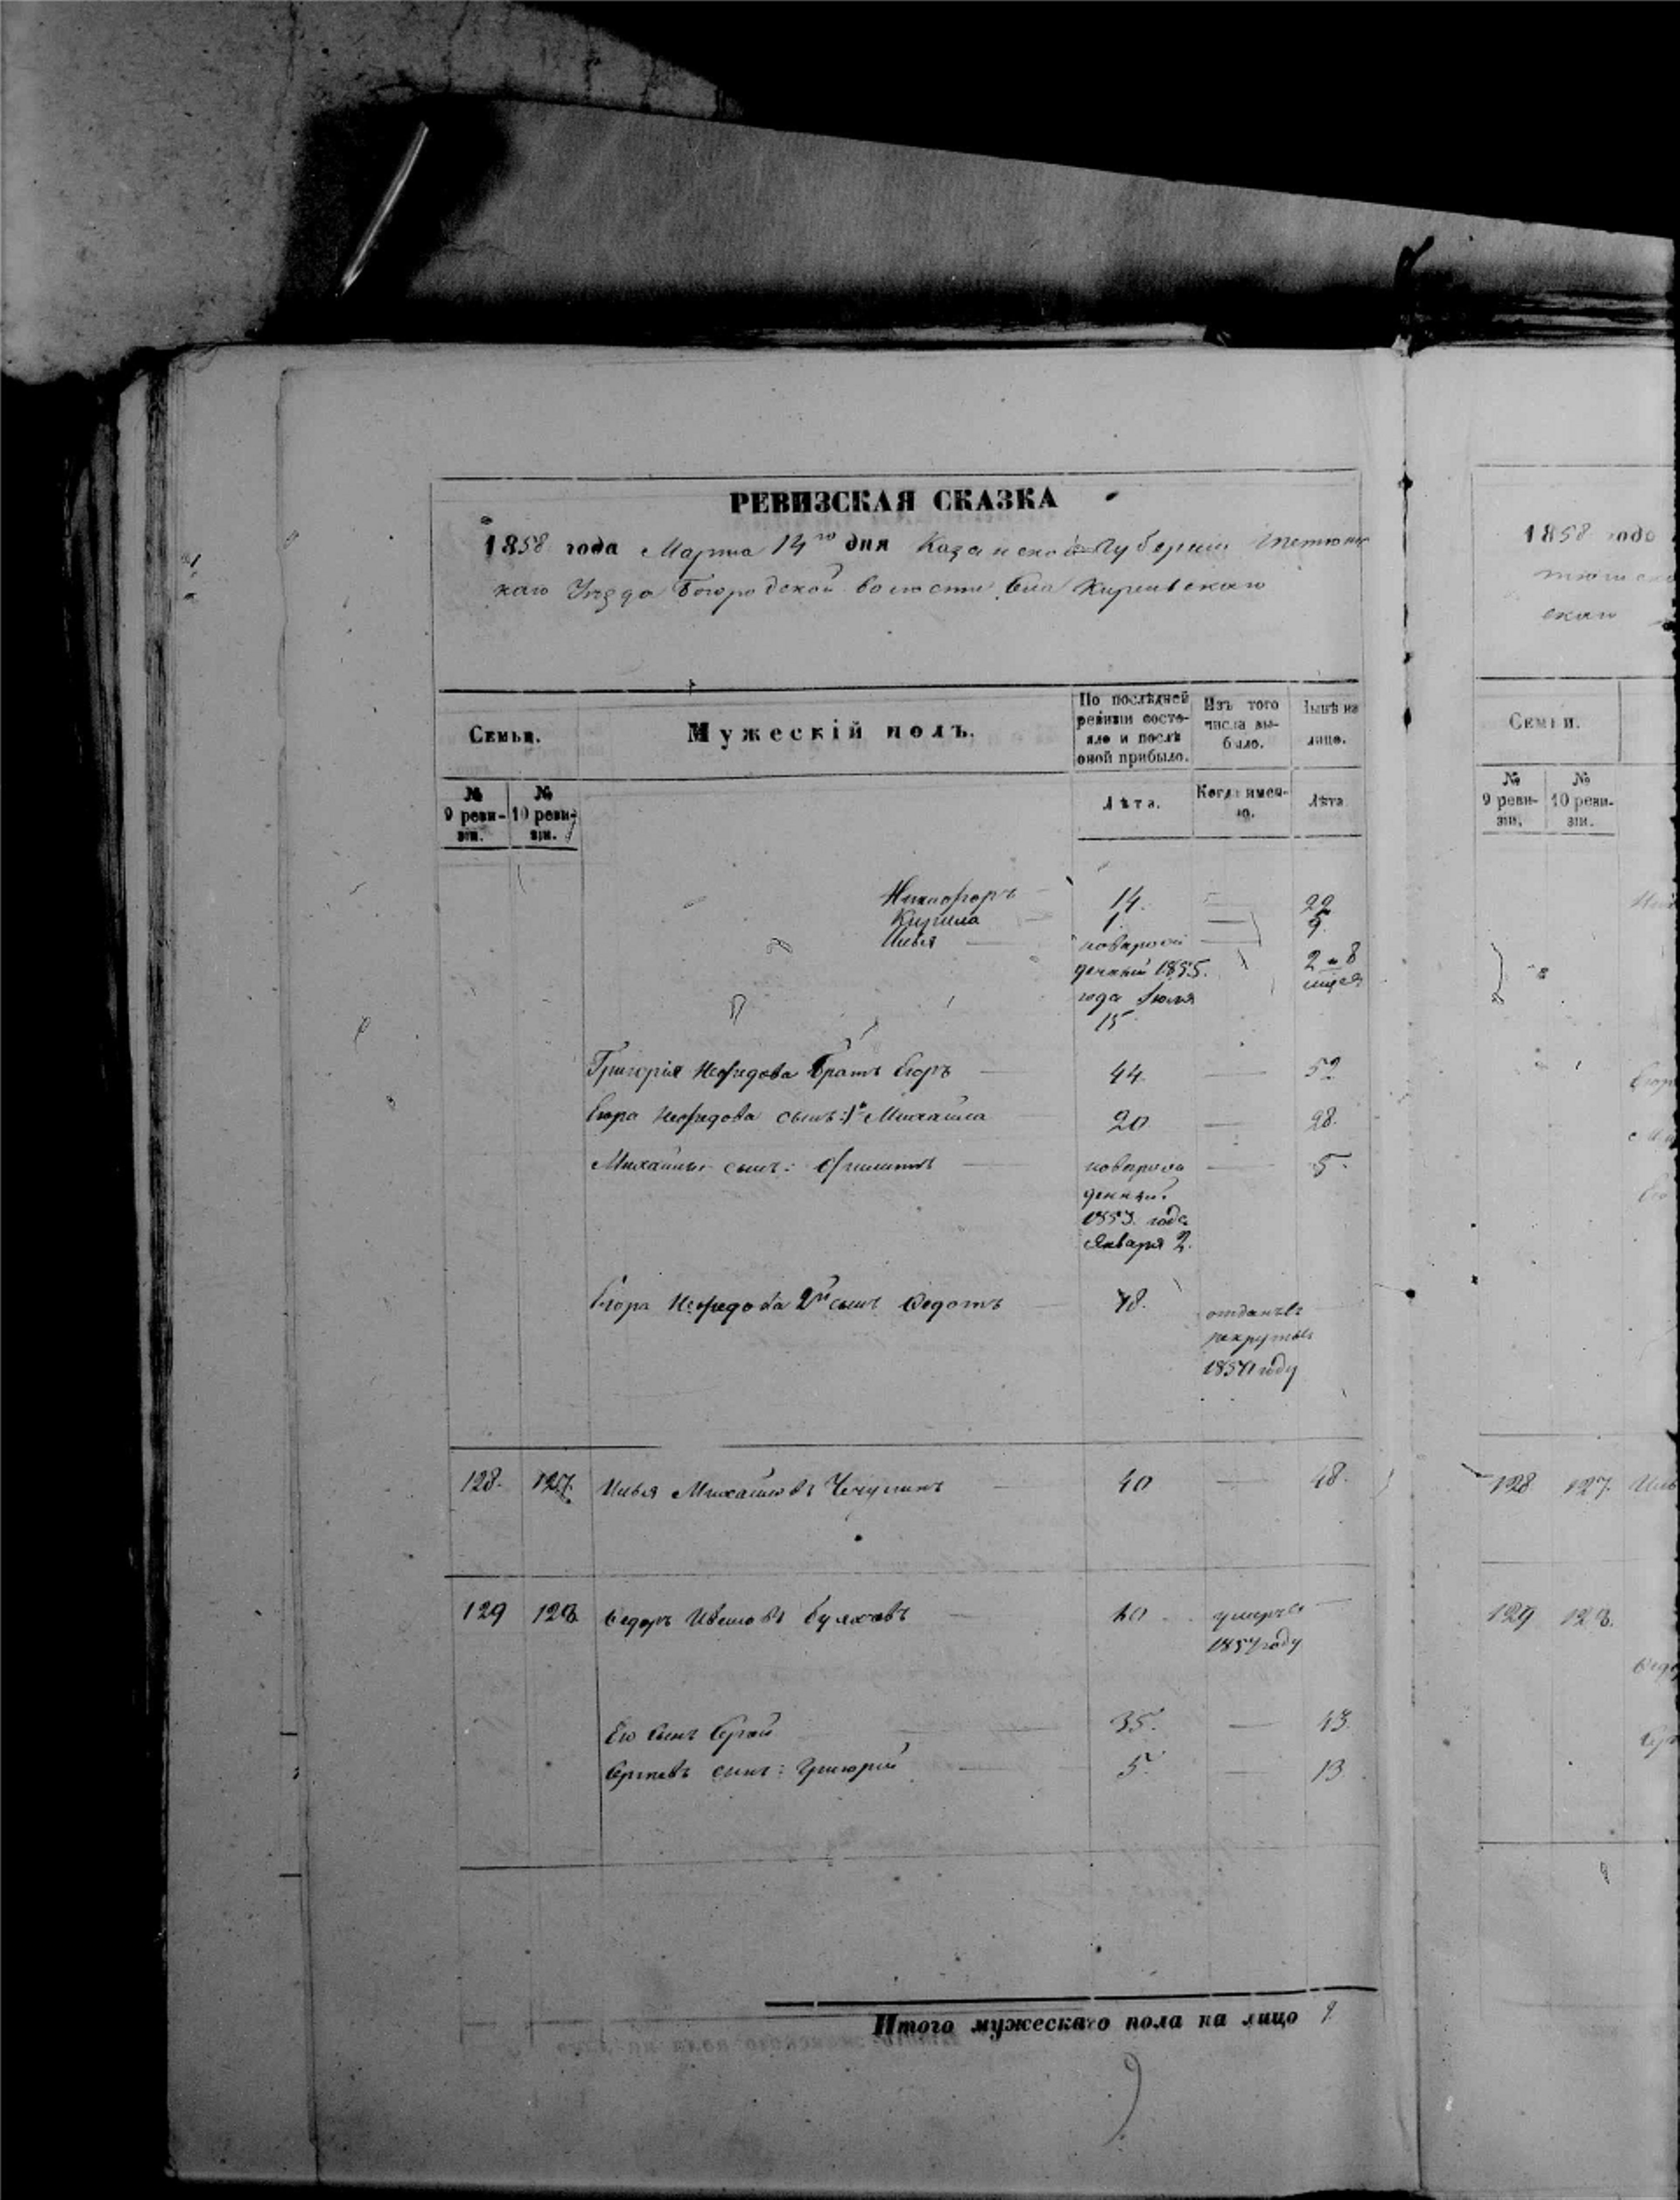 РЕВИЗСКАЯ СКАЗКА
1858 года Марта 14го дня Казанской Губернии Тетюш
каго Уезда Богородской волости Села
Семьи.
Мужескій полъ.
По послѣдней ревизіи состояло и послѣ оной прибыло.
Изъ того числа выбыло.
Нынѣ на лицо.
№ 9 ревизіи.
№ 10 ревизіи.
Лѣта.
Когда именно.
Лѣта
Никифоръ 14. — 22
Кирила 1. — 9.
Илья — новорож
денный 1855. 2 и 8
года Июля мцсв
15
Григорія Нефедова братъ Егоръ — 44 — 52
Егора Нефедова сынъ: 1й Михайла 20 — 28.
Михайлы сынъ: Филиппъ — новорож — 5.
денный.
1853. года
Января 2.
Егора Нефедова 2й сынъ Федотъ — 18. отданъ въ
рекруты въ
году
128. 127. Илья Михайловъ — 40 — 48.
129 128. Федоръ — умеръ въ
году
Его сынъ Сергей 35. — 43.
Сергеевъ сынъ: Григорій — 5. — 13.
Итого мужескаго пола на лицо 9.
1858 года
скаго
Семьи.
№ 9 ревизіи.
№ 10 ревизіи.
128 127. Иль
129 128.